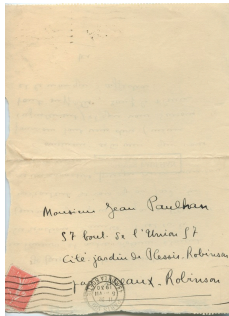 Monsieur Jean Paulhan
57 boul. de l'Union 57
Cité-jardin de Plessis-Robinson
par Sceaux-Robinson